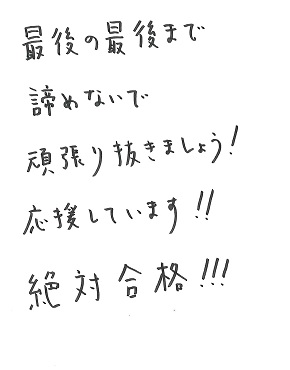 最後の最後まで
諦めないで
頑張り抜きましょう!
応援しています!!
絶対合格!!!